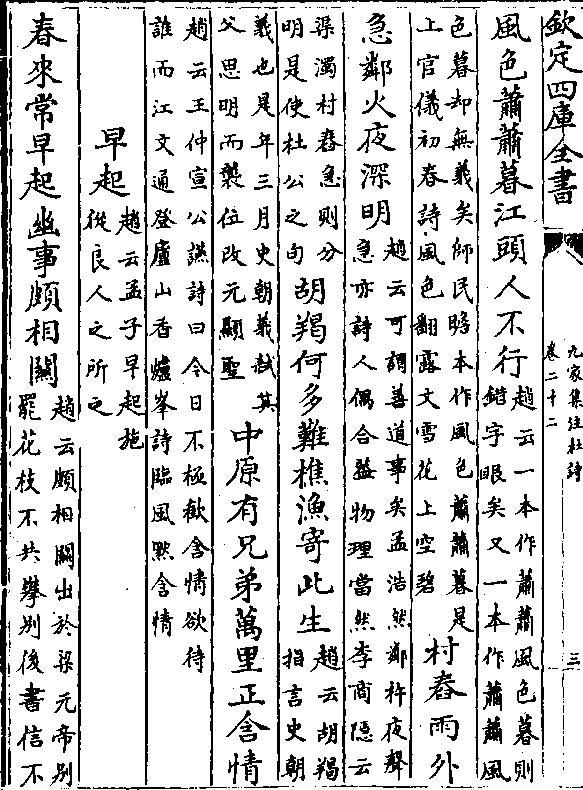 欽定四庫全書
九家集注杜詩
卷二十二
三
風色蕭蕭暮江頭人不行趙云一本作蕭蕭風色暮則錯字眼矣又一本作蕭蕭風
色暮却無義矣師民瞻本作風色蕭蕭暮是上官儀初春詩風色翻露文雪花上空碧村舂雨外
急鄰火夜深明趙云可謂善道事矣孟浩然鄰杵夜聲急亦詩人偶合益物理當然李商隱云
梁濁村舂急則分明是使杜公之句胡羯何多難樵漁寄此生趙云胡羯指言史朝
義也是年三月史朝義弑其父思明而襲位改元顯聖中原有兄弟萬里正含情
趙云王仲宣公讌詩曰今日不極歡含情欲待誰而江文通登廬山香爐峯詩臨風黙含情
早起趙云孟子早起施從良人之所之
春來常早起幽事頗相關趙云頗相關出於梁元帝别罷花枝不共攀别後書信不